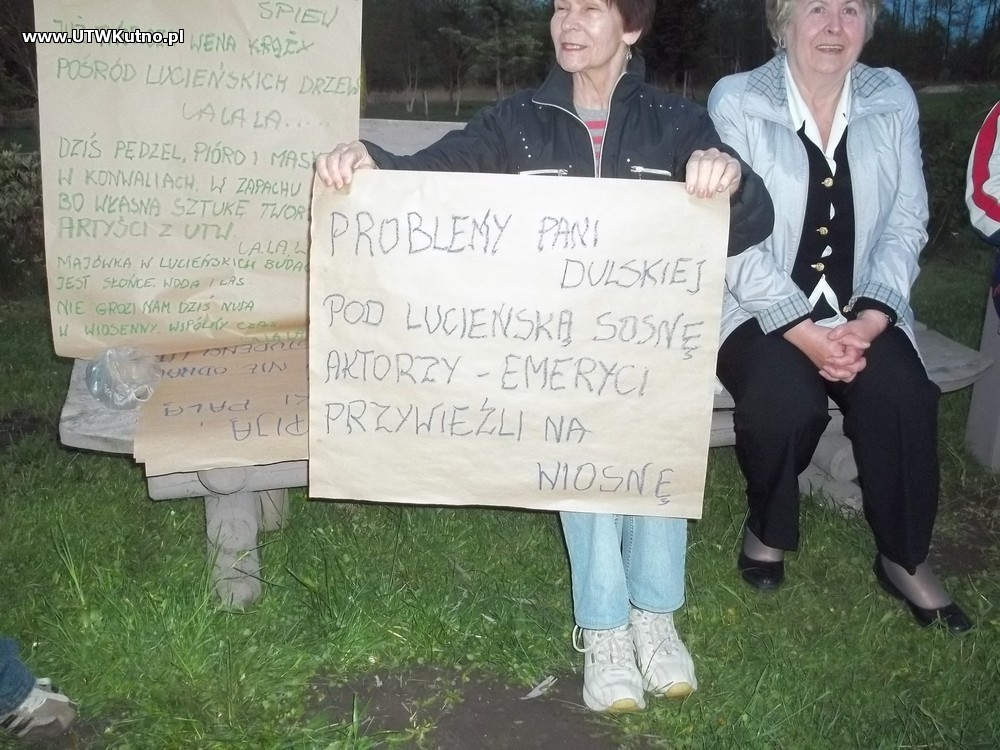 www.UTWKutno.pl
ŚPIEW
WENA KRĄŻY
POŚRÓD LUCIEŃSKICH DRZEW
LA LA LA....
DZIŚ PĘDZEL, PIÓRO I MASK
W KONWALIACH, W ZAPACHU
BO WŁASNĄ SZTUKĘ TWOR
ARTYŚCI Z UTW.
LA, LA, L
MAJÓWKA W LUCIEŃSKICH BUDA
JEST SŁOŃCE, WODA I LAS
NIE GROZI NAM DZIŚ NUDA
W WIOSENNY, WSPÓLNY CZAS
PROBLEMY PANI
DULSKIEJ
POD LUCIEŃSKĄ SOSNĘ
AKTORZY - EMERYCI
PRZYWIEŹLI NA
WIOSNĘ
NIE
PALĄ
PIJĄ